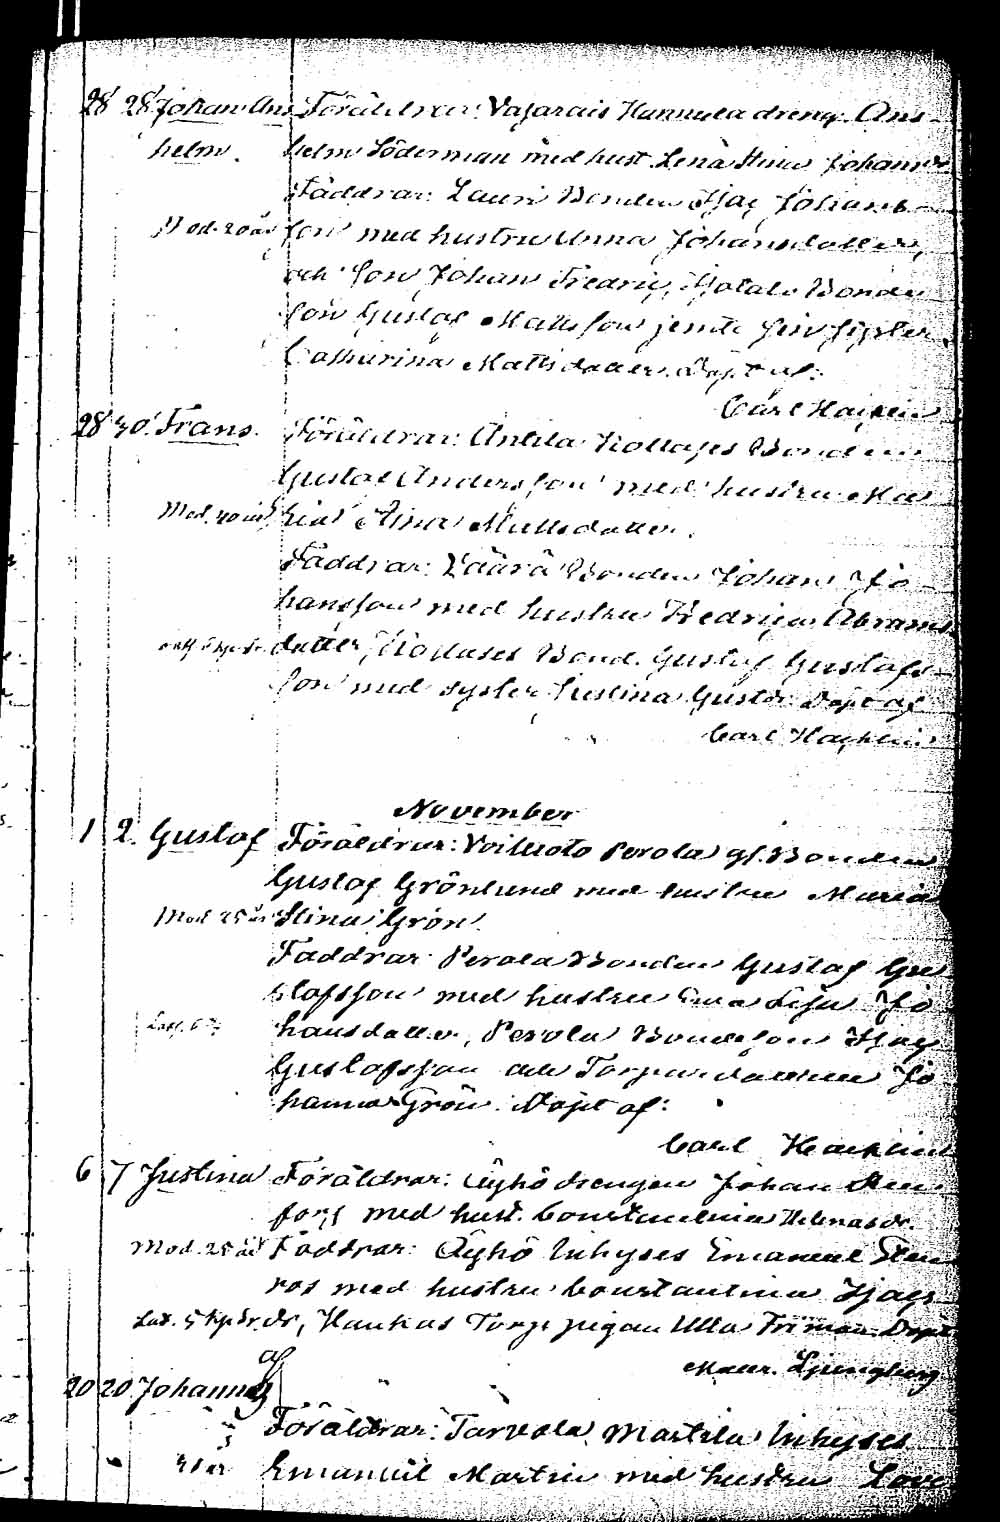 28 28 Johan Ans Föräldrar: Vajarais Hannula dreng. Ans-
helm. helm Söderman med hust. Lena Stina Johansdr.
Faddrar: Lauri Bonden Isac Johans-
Mod. 20 år son med hustru Anna Johansdotter,
och Son Johan Fredric, Bonde
son Gustaf Mattsson jemte sin syster
Catharina Mattsdotter. Döpt af:
Carl Hacklin
28 30. Frans. Föräldrar: Antila Kollases Bonden
Gustaf Andersson med hustru Ma
Mod. 40 år ria Stina Mattsdotter.
Faddrar: Väärä Bonden Johan Jo
hansson med hustru Fredrica Abrams
dotter, Kollases Bond. Gustaf Gustafs-
son med syster Justina Gustdr. Döpt af
Carl Hacklin
November
1 2. Gustaf Föräldrar: Voiluoto Perola gl. Bonden
Gustaf Grönlund med hustru Maria
Mod 25 år Stina Grön.
Faddrar: Perola Bonden Gustaf Gu
stafsson med hustru Eva Lisa Jo
hansdotter, Perola Bondeson Isac
Gustafsson och Torparedottren Jo
hanna Grön. Döpt af:
Carl Hacklin
6 7 Justina Föräldrar: Äyhö drengen Johan Sten
fors med hust. Constantina Helenasdr.
Mod. 25 år Faddrar: Äyhö Inhyses Emanuel Sten
ros med hustru Constantina Isacs-
dr, Haukas Torp. pigan Ulla Friman. Döpt
af
Maur. Ljungberg
20 20. Johannes
Föräldrar: Tarvola Martila Inhyses
31 år Emanuel Martin med hustru Lovi